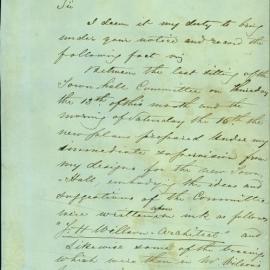 Sir
I deem it my duty to bring
under your notice and record the
following fact viz
Between the last sitting of the
Town hall Committee on Thursday
the 13th of this month and the
morning of Saturday the 15th the
new plans prepared under my
immediate supervision from
my designs for the new Town
Hall, embodying the ideas and
suggestions of the Committee
were written upon in ink as follows
"J. H. Willson Architect" and
likewise some of the tracings
which were then in Mr